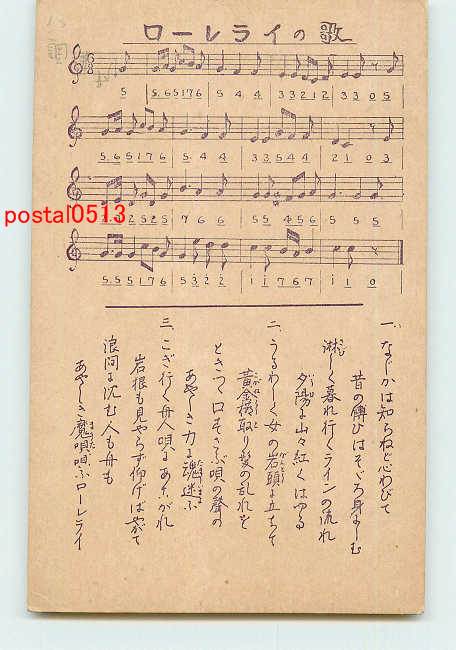 ローレライの歌
5 5.65176 5 4 4 33212 3305
5.65176 5.4 4 33544 2103
2.2525 7 6 6 55456 5 5 5
5.55176 53̇2̇2̇ 1̇1̇767 1̇1̇0
postal0513
一、なじかは知らねど心わびて
昔の傳ひはそゞろ身にしむ
淋しく暮れ行くラインの流れ
夕陽に山々紅くはゆる
二、うるわしく女の岩頭に立ちて
黄金櫛取り髪の乱れを
ときつゝ口そさぶ唄の聲の
あやしき力に魂迷ふ
三、こぎ行く舟人唄にあこがれ
岩根も見やらず仰げばやがて
浪間に沈む人も舟も
あやしき魔唄唄ふローレライ